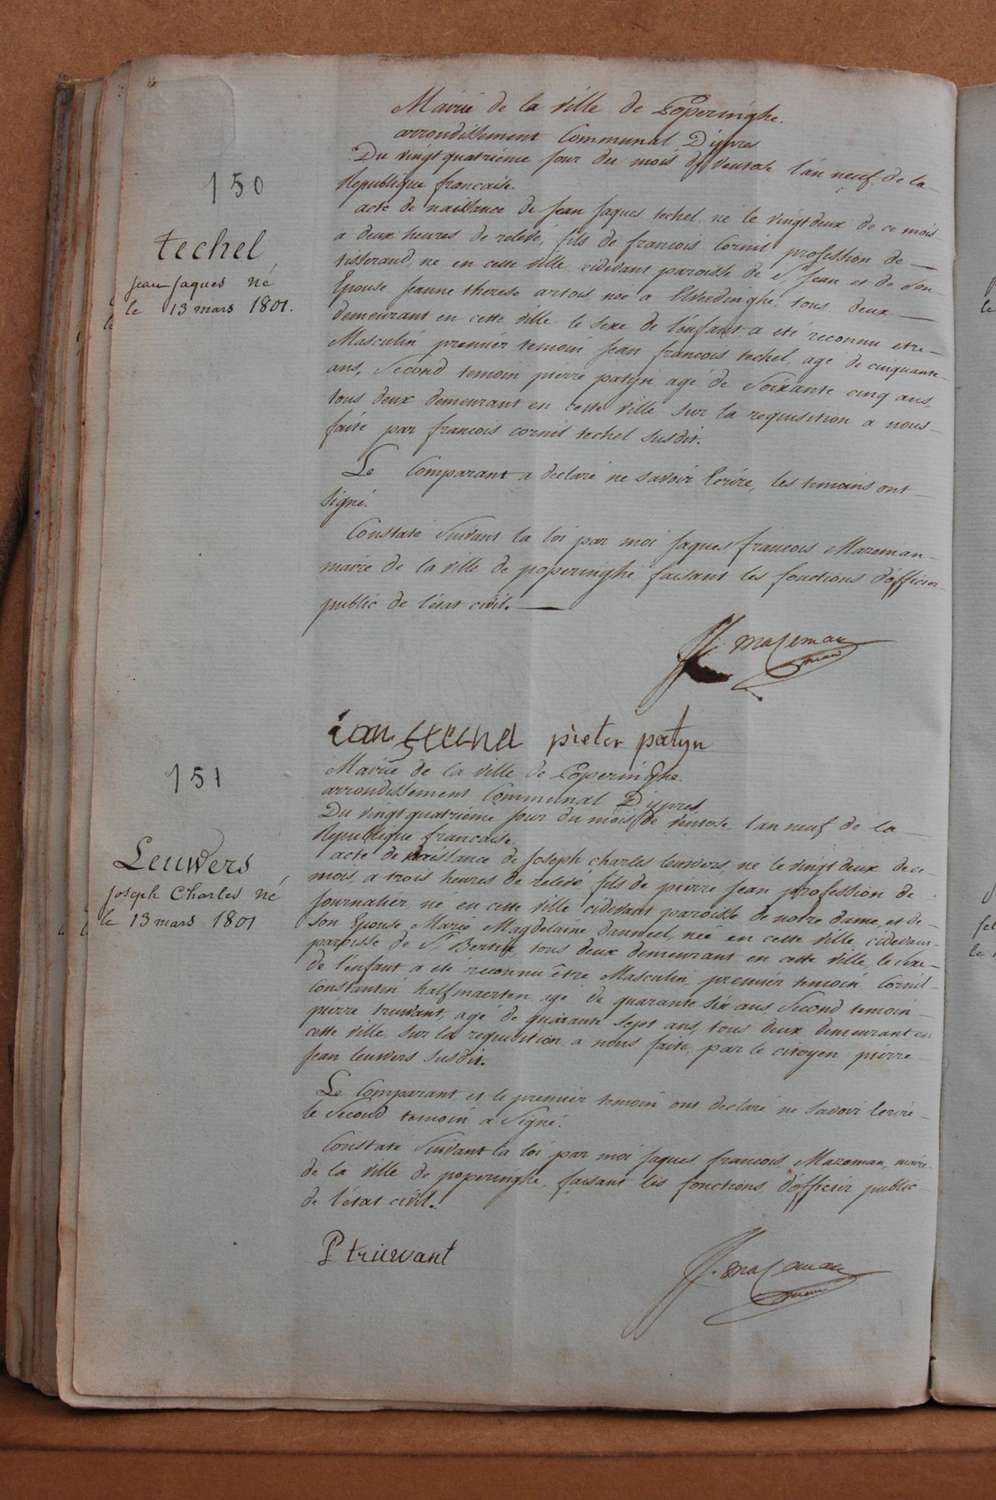 Mairie de la ville de Poperinghe.
arrondissement Communal D'ypres
Du vingt quatrieme jour du mois de ventose l'an neuf de la
Republique francaise.
150
acte de naissance de Jean Jaques techel né le vingt deux de ce mois
a deux heures de relevé, fils de francois Cornil profession de
techel
tisserand, né en cette ville cidevant paroisse de St Jean et de son
Jean Jaques né
Epouse Jeanne therese artois née a tous deux
le 13 mars 1801.
demeurant en cette ville le sexe de l'enfant a eté reconnu etre
Masculin premier temoin Jean francois techel agé de cinquante
ans, Second temoin pierre patyn agé de Soixante cinq ans
tous deux demeurant en cette ville sur la requisition a nous
faite par francois cornil techel susdit.
Le Comparant a declaré ne savoir Ecrire, les temoins ont
signé.
Constaté Suivant la loi par moi Jaques francois Mazeman
maire de la ville de poperinghe faisant les fonctions d'officier
public de l'état civil.
JF Mazeman
maire
pieter patyn
151
Mairie de la ville de Poperinghe
arrondissement Communal D'ypres
Du vingt quatrieme jour du mois de ventose l'an neuf de la
Republique francaise
Leuwers
acte de naissance de Joseph charles leuwers, né le vingt deux de ce
Joseph Charles né
mois a trois heures de relevé, fils de pierre Jean profession de
le 13 mars 1801
Journalier né en cette ville cidevant paroisse de notre dame, et de
son Epouse Marie Magdelaine née en cette ville, cidevant
paroisse de St Bertin, tous deux demeurant en cette ville le sexe
de l'enfant a eté reconnu être Masculin premier temoin Cornil
Constantin halfmaerten agé de quarante six ans, Second temoin
pierre truwant, agé de quarante sept ans, tous deux demeurant en
cette ville sur la requisition a nous faite, par le citoyen pierre
Jean leuwers susdit.
Le Comparant et le premier temoin ont declaré ne savoir Ecrire
le Second temoin a signé.
Constaté Suivant la loi par moi Jaques francois Mazeman, maire
de la ville de poperinghe, faisant les fonctions d'officier public
de l'état civil.
P truwant
JF Mazeman
maire